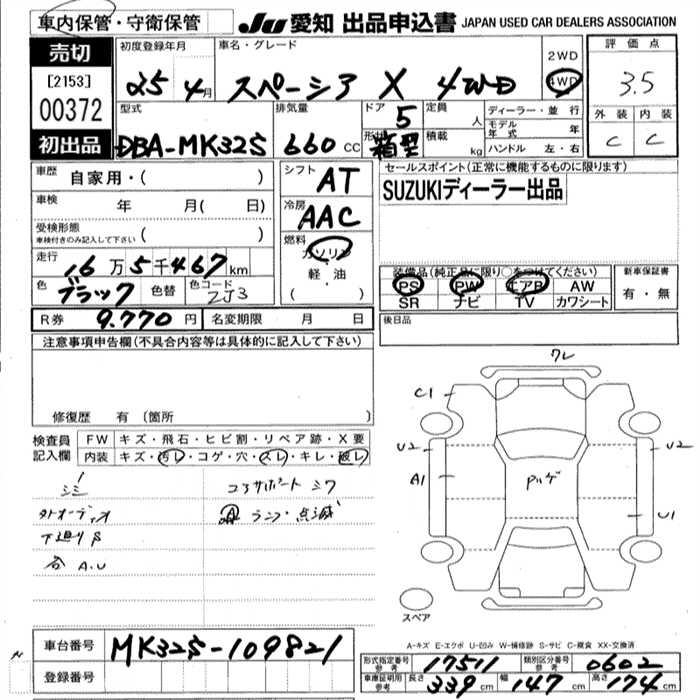 車内保管・守衛保管
JU 愛知 出品申込書 JAPAN USED CAR DEALERS ASSOCIATION
売切
[2153]
00372
初出品
初度登録年月
25 4月
車名・グレード
スペーシア X 4WD
2WD
4WD
評価点
3.5
外装 内装
C C
型式
DBA-MK32S
排気量
660 cc
ドア 5
形状 箱型
定員 人
積載 kg
ディーラー・並行
モデル年式 年
ハンドル 左・右
車歴 自家用・( )
車検 年 月( 日)
受検形態
車検付きのみ記入して下さい ( )
走行 16万5千467km
色 ブラック 色替 色コード ZJ3
シフト AT
冷房 AAC
燃料
ガソリン
軽・油
( ・ )
セールスポイント(正常に機能するものに限ります)
SUZUKIディーラー出品
装備品(純正品に限り○をつけてください)
PS PW エアB AW
SR ナビ TV カワシート
新車保証書
有・無
R券 9.770円 名変期限 月 日
後日品
注意事項申告欄(不具合内容等は具体的に記入して下さい)
修復歴 有(箇所 )
検査員記入欄
FW キズ・飛石・ヒビ割・リペア跡・X要
内装 キズ・汚レ・コゲ・穴・スレ・キレ・破レ
シミ
コアサポート シワ
外オーディオ
ランプ点滅
下廻りS
A.U
ワレ
C1
U2
U2
A1
U1
スペア
A-キズ E-エクボ U-凹み W-補修跡 S-サビ C-腐食 XX-交換済
車台番号 MK32S-109821
登録番号
形式指定番号 参考 17511 類別区分番号 参考 0602
車庫証明用 参考 長さ 339cm 幅 147cm 高さ 174cm